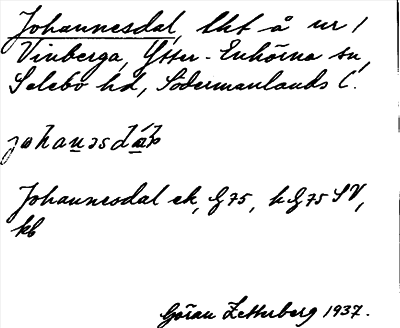 Johannesdal, lht å nr 1
Vinberga, Ytter-Enhörna sn,
Selebo hd, Södermanlands l.
Johannesdal ek, G75, h G75 SV,
kb
Göran Zetterberg 1937.